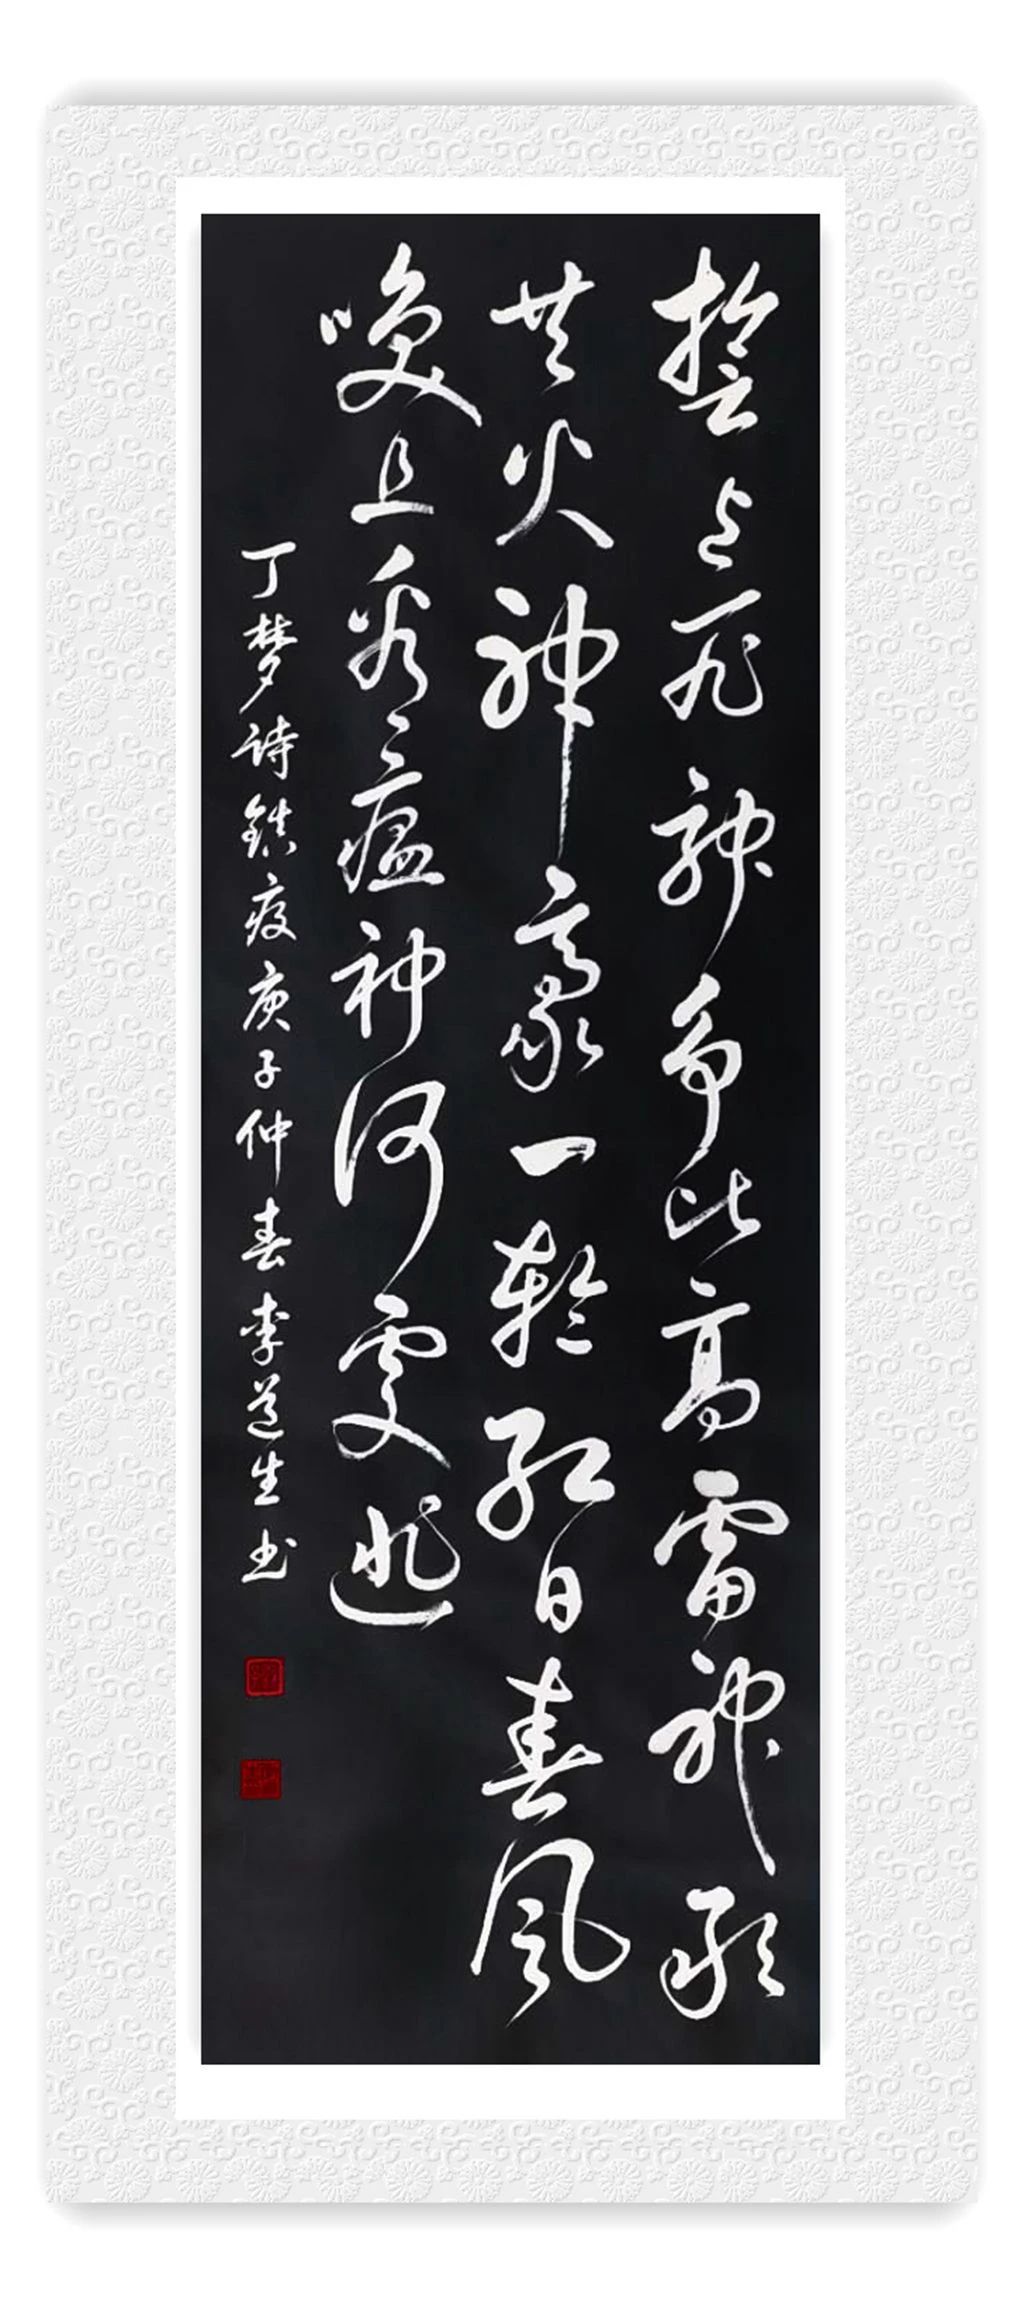 誓与死神争比高雷神敢
共火神豪一轮红日春风
唤且看瘟神何处逃
丁梦诗镇疫庚子仲春李道生书